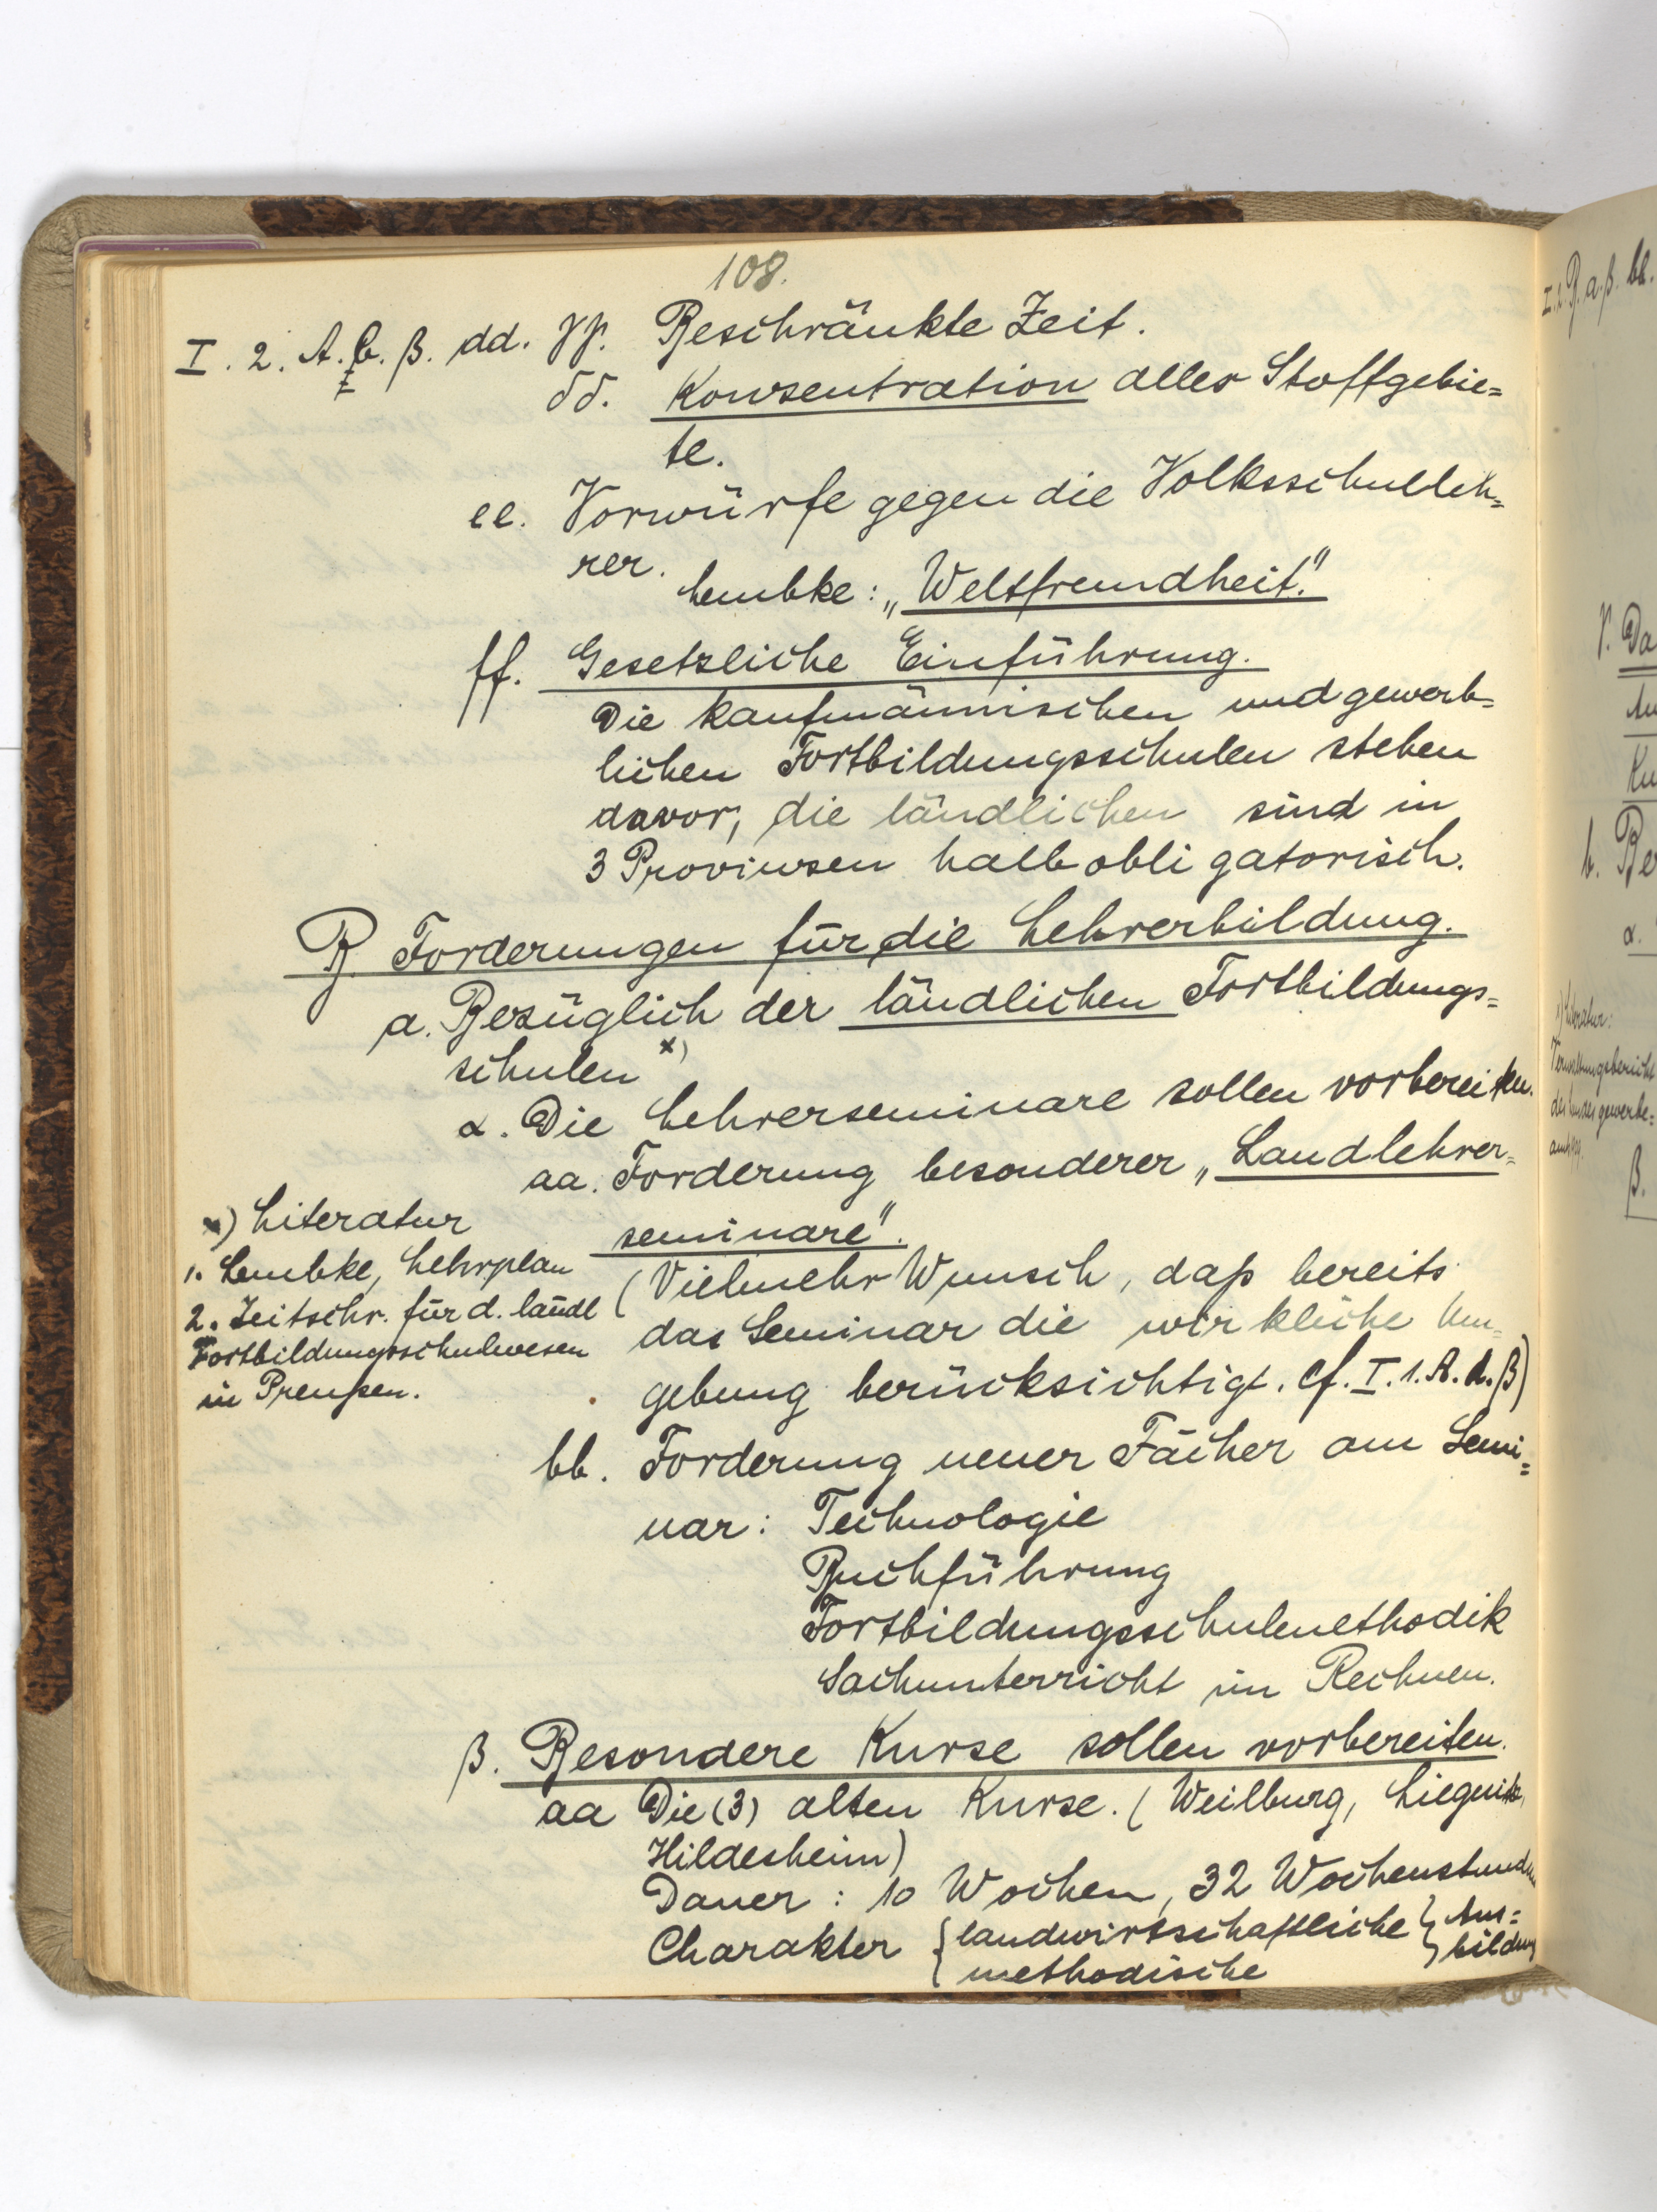 108.
I. 2. A. b. β. dd. γγ. Beschränkte Zeit.
δδ. Konzentration aller Stoffgebie=
te.
ee. Vorwürfe gegen die Volksschulleh=
rer.
Lembke: „Weltfremdheit."
ff. Gesetzliche Einführung.
Die kaufmännischen und gewerb=
lichen Fortbildungsschulen stehen
davor, die ländlichen sind in
3 Provinzen halbobligatorisch.
B. Forderungen für die Lehrerbildung.
a. Bezüglich der ländlichen Fortbildungs=
schulen x)
α. Die Lehrerseminare sollen vorbereiten.
aa. Forderung besonderer „Landlehrer=
seminare".
(Vielmehr Wunsch, daß bereits
das Seminar die wirkliche Um=
gebung berücksichtigt. cf. I. 1. A. d. β)
x) Literatur
1. Lembke, Lehrplan
2. Zeitschr. für d. ländl
Fortbildungsschulwesen
in Preußen.
bb. Forderung neuer Fächer am Semi=
nar: Technologie
Buchführung
Fortbildungsschulmethodik
Sachunterricht im Rechnen.
β. Besondere Kurse sollen vorbereiten.
aa Die (3) alten Kurse. (Weilburg, Liegnitz,
Hildesheim)
Dauer: 10 Wochen, 32 Wochenstunden
Charakter { landwirtschaftliche } Aus=
{ methodische } bildung
I. 2. B. a. β. bb.
γ. Da
Ku
b. Be
α.
1) Literatur:
Verwaltungsbericht
des Landesgewerbe=
β.